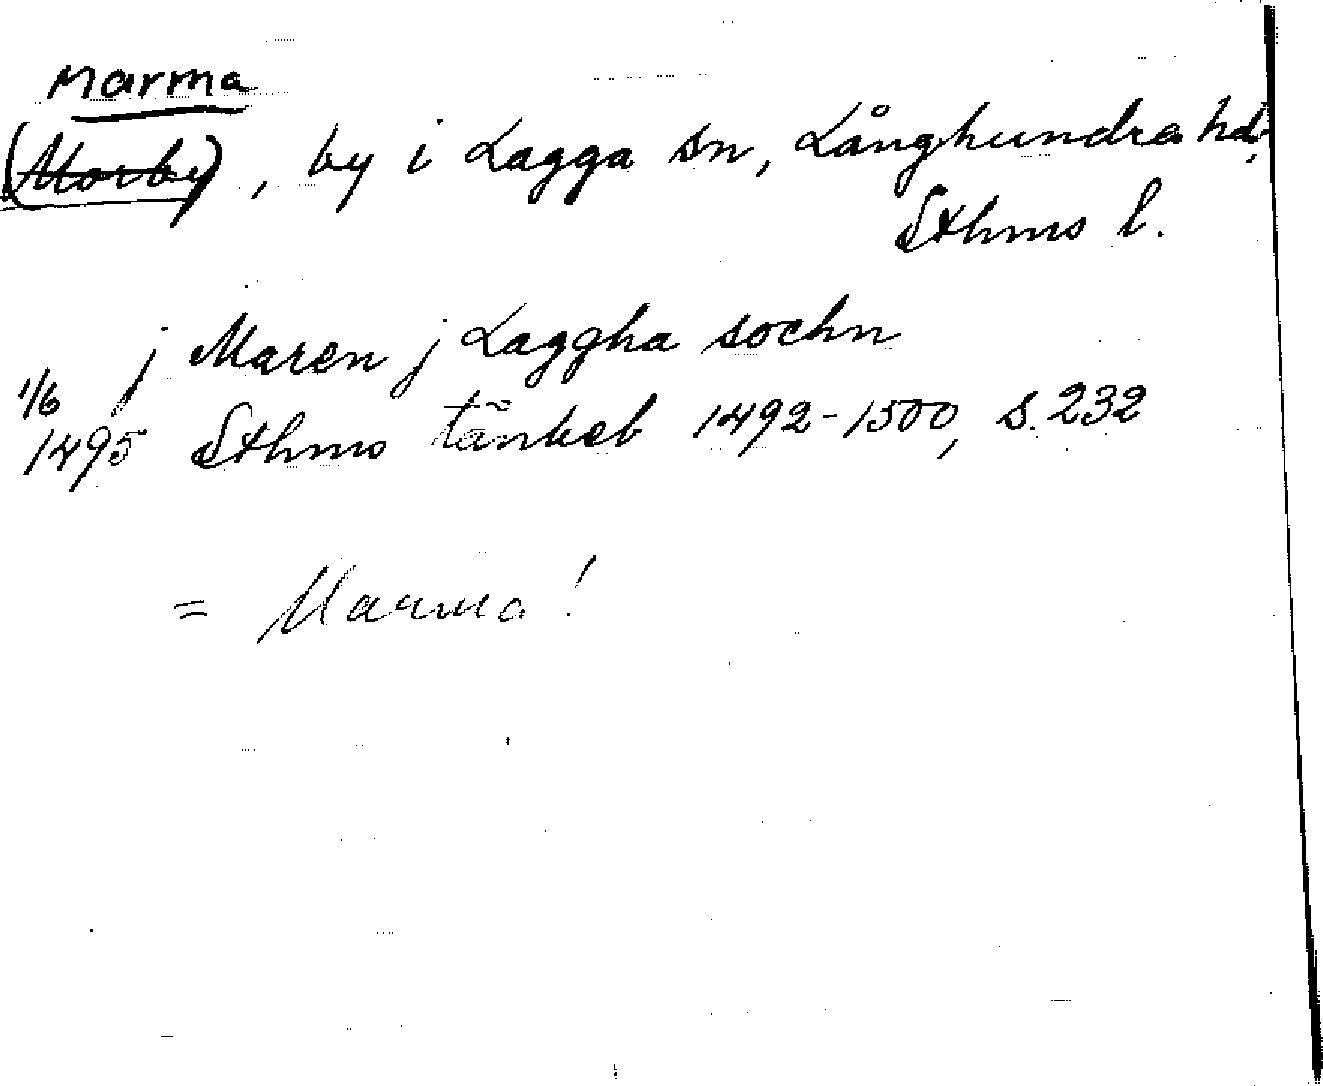 Marma
(Morby), by i Lagga sn, Långhundra hd,
Sthms l.
j Maren j Laggha sochn
1/6
1495 Sthms tänkeb 1492-1500, s. 232
= Marma!